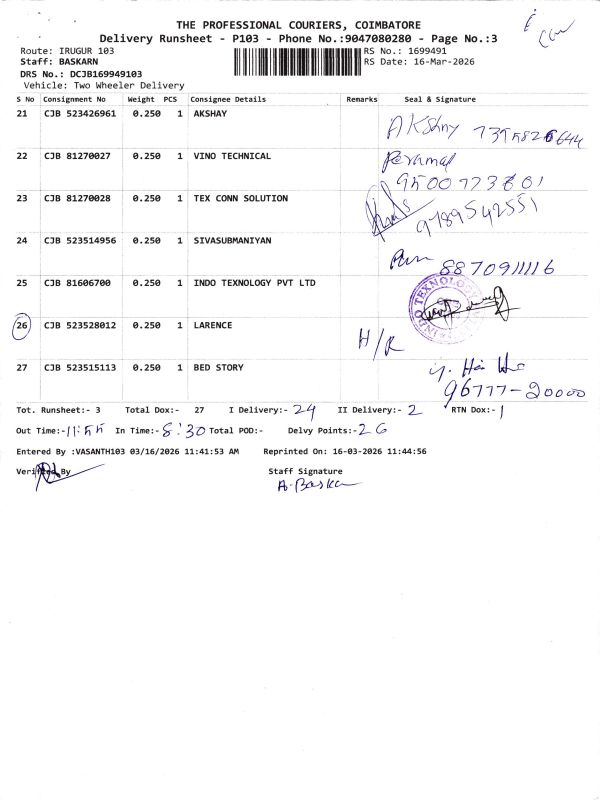 THE PROFESSIONAL COURIERS, COIMBATORE
Delivery Runsheet - P103 - Phone No.:9047080280 - Page No.:3
Route: IRUGUR 103 RS No.: 1699491
Staff: BASKARN RS Date: 16-Mar-2026
DRS No.: DCJB169949103
Vehicle: Two Wheeler Delivery
S No Consignment No Weight PCS Consignee Details Remarks Seal & Signature
21 CJB 523426961 0.250 1 AKSHAY
AKshay
22 CJB 81270027 0.250 1 VINO TECHNICAL Peramal
23 CJB 81270028 0.250 1 TEX CONN SOLUTION
9789542551
24 CJB 523514956 0.250 1 SIVASUBMANIYAN
25 CJB 81606700 0.250 1 INDO TEXNOLOGY PVT LTD
INDO TEXNOLOGY
26 CJB 523528012 0.250 1 LARENCE H/R
27 CJB 523515113 0.250 1 BED STORY
96777-20000
Tot. Runsheet:- 3 Total Dox:- 27 I Delivery:- 24 II Delivery:- 2 RTN Dox:- 1
Out Time:- 11:55 In Time:- 8:30 Total POD:- Delvy Points:- 26
Entered By :VASANTH103 03/16/2026 11:41:53 AM Reprinted On: 16-03-2026 11:44:56
Verified By Staff Signature
A. Baska